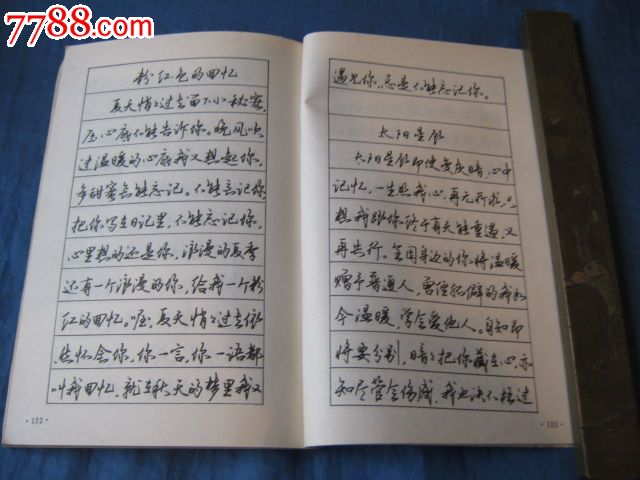 7788.com
中国收藏热线
粉红色的回忆
夏天悄々过去留下小秘密,
压心底不能告诉你。晚风吹
过温暖的心底我又想起你,
多甜蜜怎能忘记。不能忘记你
把你写在日记里,不能忘记你,
心里想的还是你,浪漫的夏季
还有一个浪漫的你,给我一个粉
红的回忆。喔,夏天悄々过去依
然怀念你,你一言,你一语都
叫我回忆,就在秋天的梦里我又
·132·
遇见你,总是不能忘记你。
太阳星辰
太阳星辰即使变灰暗,心中
记忆,一生照我心,再无所求只
想我跟你终于有天能重遇,又
再共行。全因身边的你将温暖
赠予普通人,曾经孤僻的我和
今温暖,学会爱他人。自知即
将要分别,暗々把你藏在心,亦
知尽管会伤感,我也决不枉过
·133·